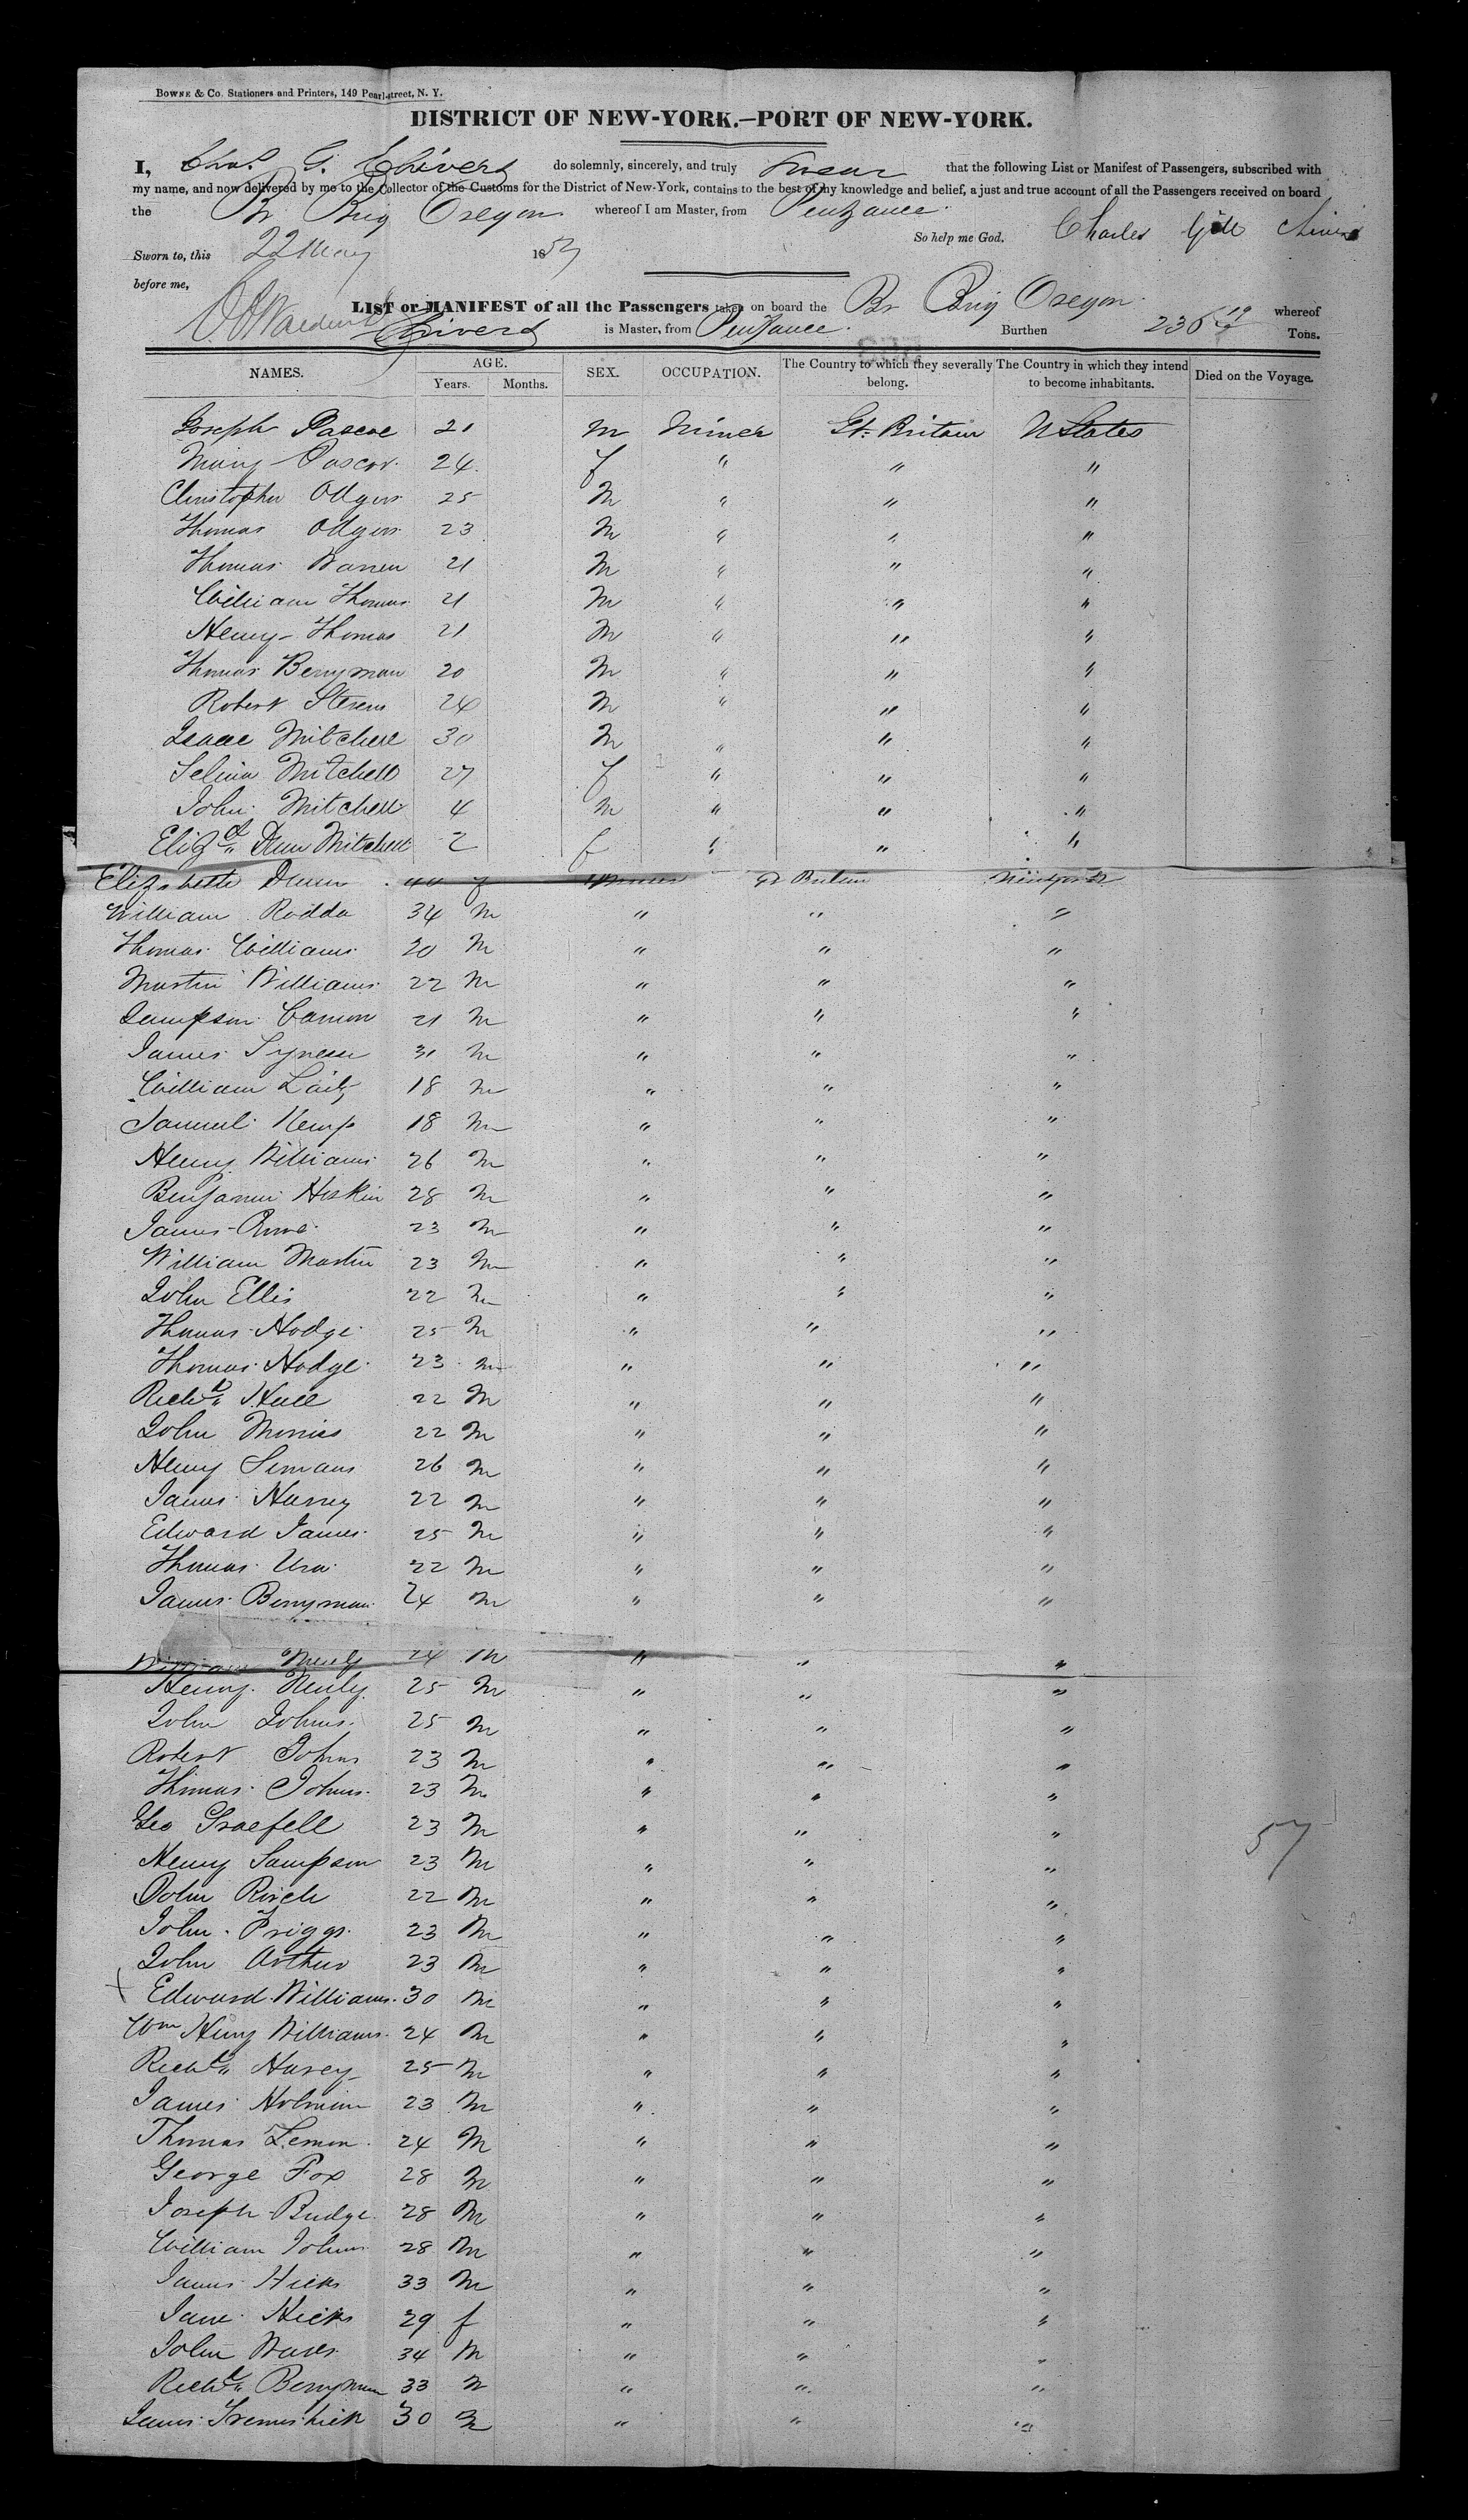 BOWNE & Co. Stationers and Printers, 149 Pearl-street, N. Y.
DISTRICT OF NEW-YORK.—PORT OF NEW-YORK.
I, Chas. G. Chivers do solemnly, sincerely, and truly swear that the following List or Manifest of Passengers, subscribed with
my name, and now delivered by me to the Collector of the Customs for the District of New-York, contains to the best of my knowledge and belief, a just and true account of all the Passengers received on board
the Br Brig Oregon whereof I am Master, from Penzance.
So help me God. Charles Gill Chivers
Sworn to, this 22 May 185
before me,
LIST or MANIFEST of all the Passengers taken on board the Br Brig Oregon. whereof
Chivers is Master, from Penzance. Burthen 236 Tons.
NAMES. AGE. SEX. OCCUPATION. The Country to which they severally belong. The Country in which they intend to become inhabitants. Died on the Voyage.
Years. Months.
Joseph Pascoe 21 M Miner Gt. Britain U States
Mary Pascoe 24 f " " "
Christopher Odgers 25 M " " "
Thomas Odgers 23 M " " "
Thomas Warren 21 M " " "
William Thomas 21 M " " "
Henry Thomas 21 M " " "
Thomas Berryman 20 M " " "
Robert Stevens 24 M " " "
Isaac Mitchell 30 M " " "
Selina Mitchell 27 f " " "
John Mitchell 4 M " " "
Elizth Dunn Mitchell 2 f " " "
Elizabeth Dunn 44 f Gt Britain
William Rodda 34 M " " "
Thomas Williams 20 M " " "
Martin Williams 22 M " " "
Sampson 21 M " " "
James 31 M " " "
William Laity 18 M " " "
Samuel Kemp 18 M " " "
Henry Williams 26 M " " "
Benjamin Hoskin 28 M " " "
James Rowe 23 M " " "
William Martin 23 M " " "
John Ellis 22 M " " "
Thomas Hodge 25 M " " "
Thomas Hodge 23 M " " "
Richd Hall 22 M " " "
John Morris 22 M " " "
Henry Simans 26 M " " "
James Harvey 22 M " " "
Edward James 25 M " " "
Thomas Uren 22 M " " "
James Berryman 24 M " " "
William 24 M " " "
Henry 25 M " " "
John Johns 25 M " " "
Robert Johns 23 M " " "
Thomas Johns 23 M " " "
Geo 23 M " " "
57
Henry Sampson 23 M " " "
John 22 M " " "
John Triggs 23 M " " "
John Arthur 23 M " " "
x Edward Williams 30 M " " "
Wm Henry Williams 24 M " " "
Richd Harvey 25 M " " "
James Holman 23 M " " "
Thomas Lemon 24 M " " "
George Fox 28 M " " "
Joseph Budge 28 M " " "
William Johns 28 M " " "
James Hicks 33 M " " "
Jane Hicks 29 f " " "
John 34 M " " "
Richd Berryman 33 M " " "
James 30 M " " "